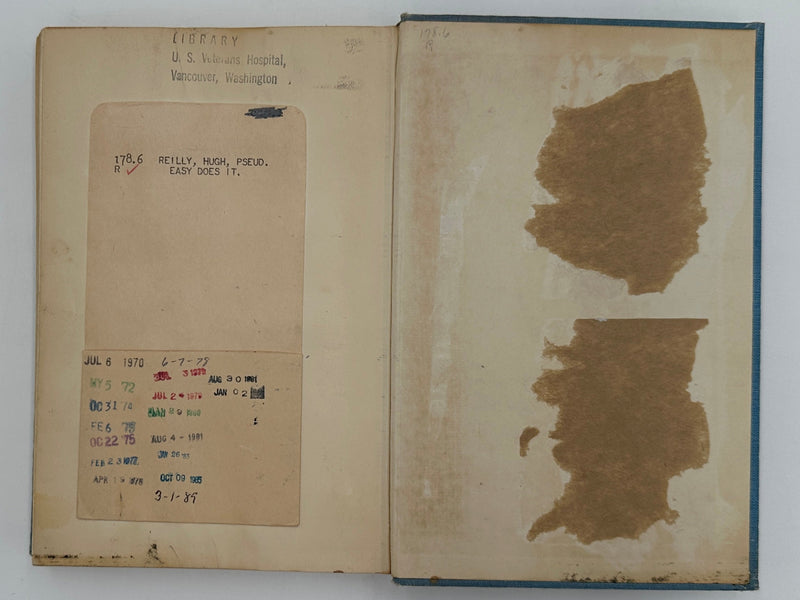 LIBRARY
U. S. Veterans Hospital,
Vancouver, Washington
178.6 REILLY, HUGH, PSEUD.
R EASY DOES IT.
JUL 6 1970
MY 5 '72
OC 31 '74
FE 6 '75
OC 22 '75
FEB 23 1977
APR 1978
6-7-79
JUL 3 1979
JUL 2 1979
MAR 29 1980
AUG 4 - 1981
JW 26 '83
OCT 09 1985
3-1-89
AUG 30 1991
JAN 02
178.6
R